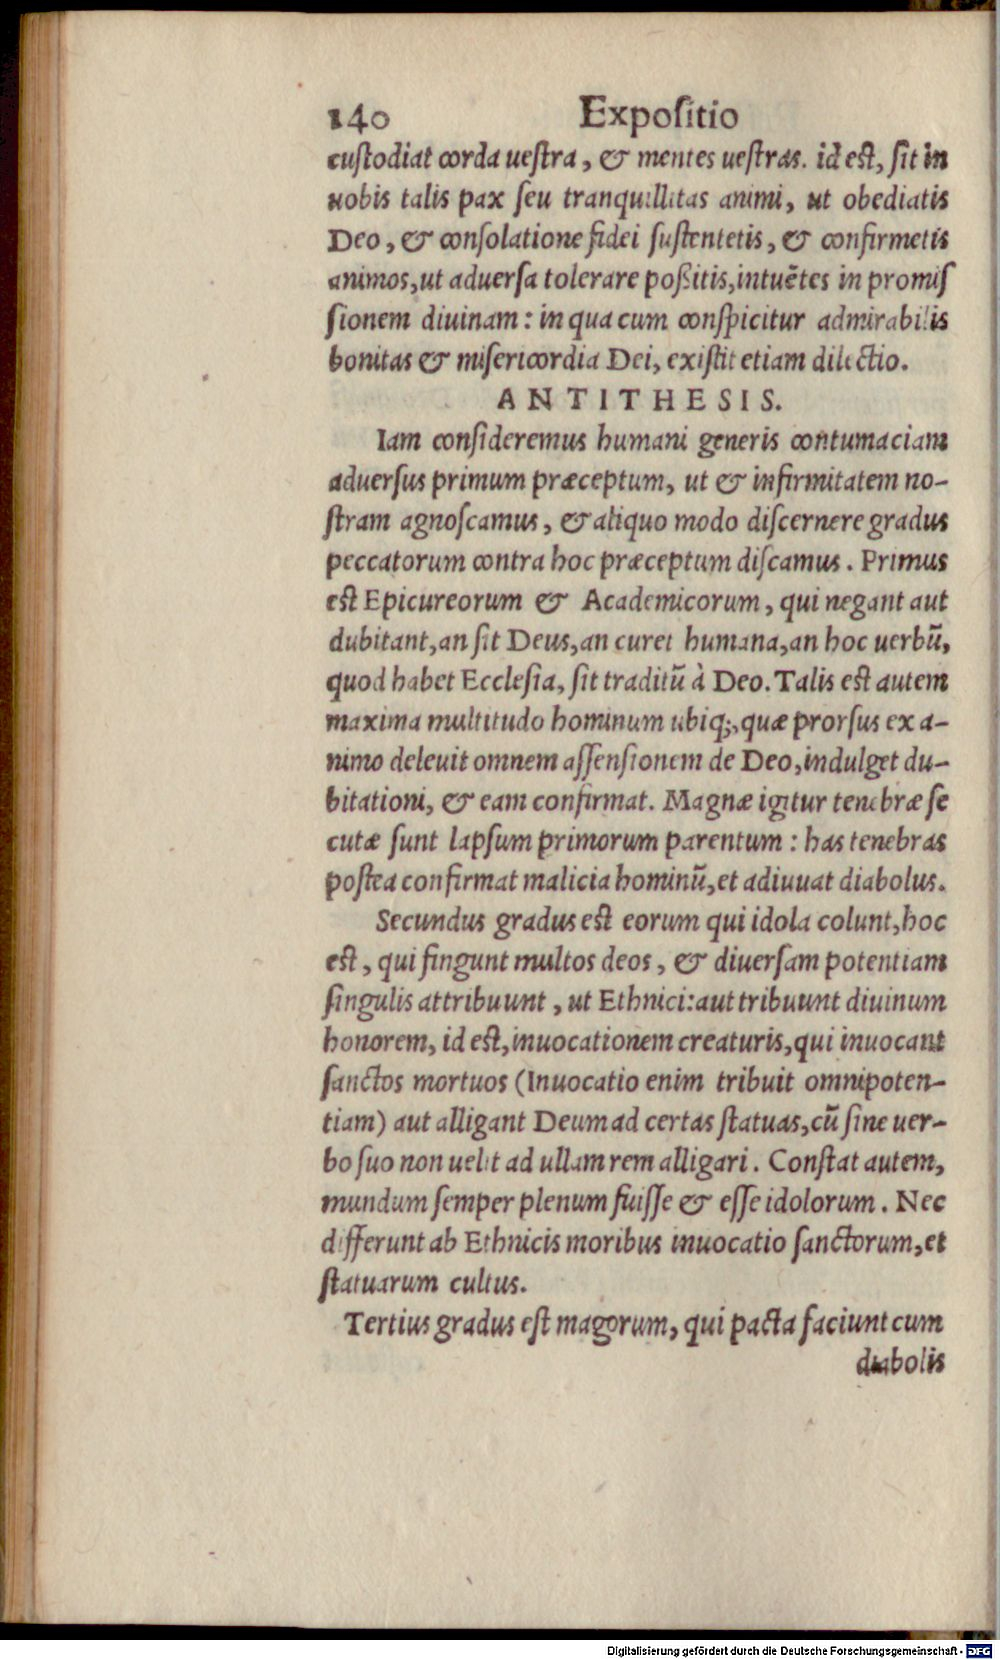 140 Expoſitio
cuſtodiat corda ueſtra, & mentes ueſtras. id eſt, ſit in
uobis talis pax ſeu tranquillitas animi, ut obediatis
Deo, & conſolatione fidei ſuſtentetis, & confirmetis
animos, ut aduerſa tolerare poßitis, intuẽtes in promiſ
ſionem diuinam: in qua cum conſpicitur admirabilis
bonitas & miſericordia Dei, exiſtit etiam dilectio.
ANTITHESIS.
Iam conſideremus humani generis contumaciam
aduerſus primum præceptum, ut & infirmitatem no-
ſtram agnoſcamus, & aliquo modo diſcernere gradus
peccatorum contra hoc præceptum diſcamus. Primus
eſt Epicureorum & Academicorum, qui negant aut
dubitant, an ſit Deus, an curet humana, an hoc uerbũ,
quod habet Eccleſia, ſit traditũ à Deo. Talis eſt autem
maxima multitudo hominum ubiq;, quæ prorſus ex a-
nimo deleuit omnem aſſenſionem de Deo, indulget du-
bitationi, & eam confirmat. Magnæ igitur tenebræ ſe
cutæ ſunt lapſum primorum parentum: has tenebras
poſtea confirmat malicia hominũ, et adiuuat diabolus.
Secundus gradus eſt eorum qui idola colunt, hoc
eſt, qui fingunt multos deos, & diuerſam potentiam
ſingulis attribuunt, ut Ethnici: aut tribuunt diuinum
honorem, id eſt, inuocationem creaturis, qui inuocant
ſanctos mortuos (Inuocatio enim tribuit omnipoten-
tiam) aut alligant Deum ad certas ſtatuas, cũ ſine uer-
bo ſuo non uelit ad ullam rem alligari. Conſtat autem,
mundum ſemper plenum fuiſſe & eſſe idolorum. Nec
differunt ab Ethnicis moribus inuocatio ſanctorum, et
ſtatuarum cultus.
Tertius gradus eſt magorum, qui pacta faciunt cum
diabolis
Digitalisierung gefördert durch die Deutsche Forschungsgemeinschaft - DFG